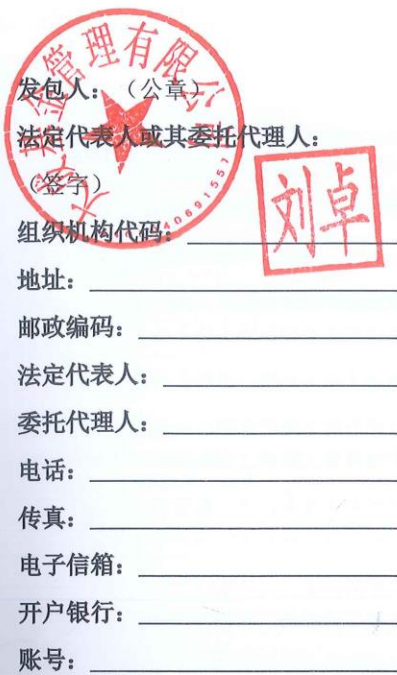 发包人：（公章）
法定代表人或其委托代理人：
（签字）
基金管理有限公司
刘卓
组织机构代码：
地址：
邮政编码：
法定代表人：
委托代理人：
电话：
传真：
电子信箱：
开户银行：
账号：